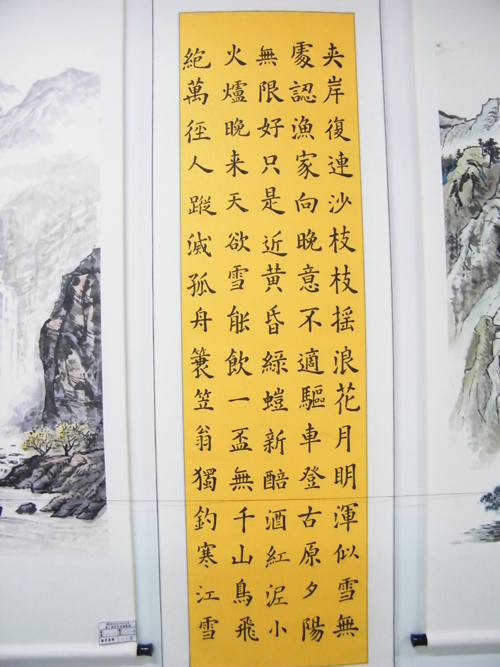 夹岸復連沙枝枝摇浪花月明渾似雪無
處認漁家向晚意不適驅車登古原夕陽
無限好只是近黄昏緑螘新醅酒紅泥小
火爐晚来天欲雪能飲一盃無千山鳥飛
絶萬径人蹤滅孤舟簑笠翁獨釣寒江雪